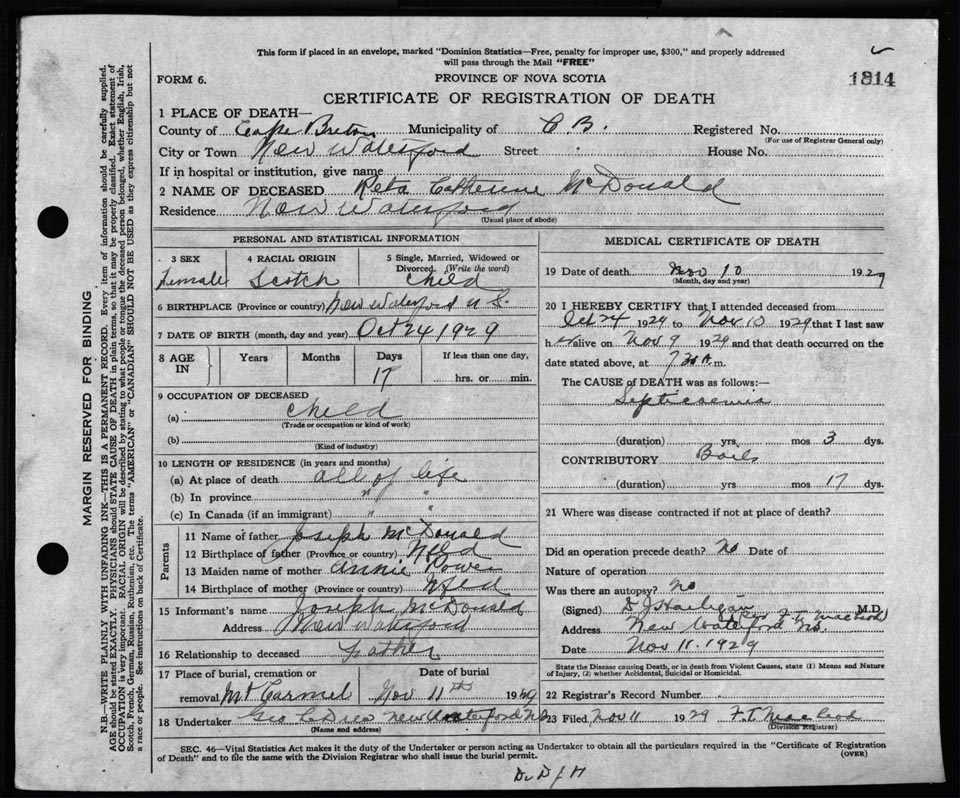 This form if placed in an envelope, marked "Dominion Statistics—Free, penalty for improper use, $300," and properly addressed
will pass through the Mail "FREE"
1814
FORM 6.
PROVINCE OF NOVA SCOTIA
CERTIFICATE OF REGISTRATION OF DEATH
1 PLACE OF DEATH—
County of Cape Breton Municipality of C B. Registered No.
(For use of Registrar General only)
City or Town New Waterford Street House No.
If in hospital or institution, give name
2 NAME OF DECEASED Reta Catherine McDonald
Residence New Waterford
(Usual place of abode)
PERSONAL AND STATISTICAL INFORMATION
3 SEX 4 RACIAL ORIGIN 5 Single, Married, Widowed or
Divorced. (Write the word)
Female Scotch Child
6 BIRTHPLACE (Province or country) New Waterford N S.
7 DATE OF BIRTH (month, day and year) Oct 24 1929
8 AGE IN Years Months Days If less than one day,
17 hrs. or min.
9 OCCUPATION OF DECEASED
(a) child
(Trade or occupation or kind of work)
(b)
(Kind of industry)
10 LENGTH OF RESIDENCE (in years and months)
(a) At place of death all of life
(b) In province " "
(c) In Canada (if an immigrant) " "
Parents
11 Name of father Joseph McDonald
12 Birthplace of father (Province or country) Nfld
13 Maiden name of mother Annie Power
14 Birthplace of mother (Province or country) Nfld
15 Informant's name Joseph McDonald
Address New Waterford
16 Relationship to deceased Father
17 Place of burial, cremation or Date of burial
removal Mt Carmel Nov 11th 1929
18 Undertaker Geo New Waterford NS
(Name and address)
MEDICAL CERTIFICATE OF DEATH
19 Date of death Nov 10 1929
(Month, day and year)
20 I HEREBY CERTIFY that I attended deceased from
Oct 24 1929 to Nov 10 1929 that I last saw
her alive on Nov 9 1929 and that death occurred on the
date stated above, at 7 30 A.m.
The CAUSE of DEATH was as follows:—
Septicaemia
(duration) yrs. mos 3 dys.
CONTRIBUTORY Boils
(duration) yrs. mos 17 dys.
21 Where was disease contracted if not at place of death?
Did an operation precede death? No Date of
Nature of operation
Was there an autopsy? No
(Signed) D J Hartigan M.D.
Address New Waterford NS.
Date Nov 11. 1929
State the Disease causing Death, or in death from Violent Causes, state (1) Means and Nature
of Injury, (2) whether Accidental, Suicidal or Homicidal.
22 Registrar's Record Number
23 Filed Nov 11 1929 F.T. MacLeod
(Division Registrar)
SEC. 46—Vital Statistics Act makes it the duty of the Undertaker or person acting as Undertaker to obtain all the particulars required in the "Certificate of Registration
of Death" and to file the same with the Division Registrar who shall issue the burial permit.
(OVER)
Dr D J H
MARGIN RESERVED FOR BINDING
N.B.—WRITE PLAINLY WITH UNFADING INK—THIS IS A PERMANENT RECORD. Every item of information should be carefully supplied.
AGE should be stated EXACTLY. PHYSICIANS should STATE CAUSE OF DEATH in plain terms, so that it may be properly classified. Exact statement of
OCCUPATION is very important. RACIAL ORIGIN will be described by stating to what people or tongue the deceased person belonged, whether English, Irish,
Scotch, French, German, Russian, Ruthenian, etc. The terms "AMERICAN" or "CANADIAN" SHOULD NOT BE USED as they express citizenship but not
a race or people. See instructions on back of Certificate.